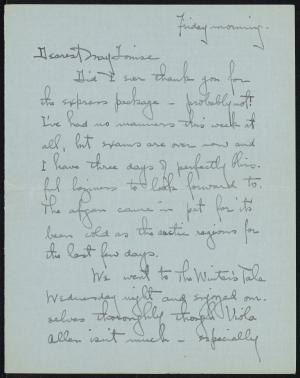 Friday morning.
Dearest May Louise
Did I ever thank you for
the express package – probably not!
I've had no manners this week at
all, but exams are over now and
I have three days of perfectly bliss-
ful laziness to look forward to.
The afgan came in pat for it's
been cold as the arctic regions for
the last few days.
We went to The Winter's Tale
Wednesday night and enjoyed our-
selves thoroughly though Viola
Allen isn't much – especially